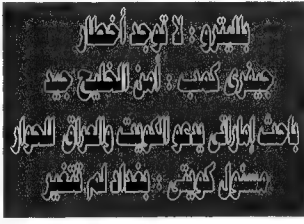 باليترو : لا توجد أخطار
جيفرى كمب : أمن الخليج جيد
باحث إماراتى يدعو الكويت والعراق للحوار
مسئول كويتى : بغداد لم تتغير